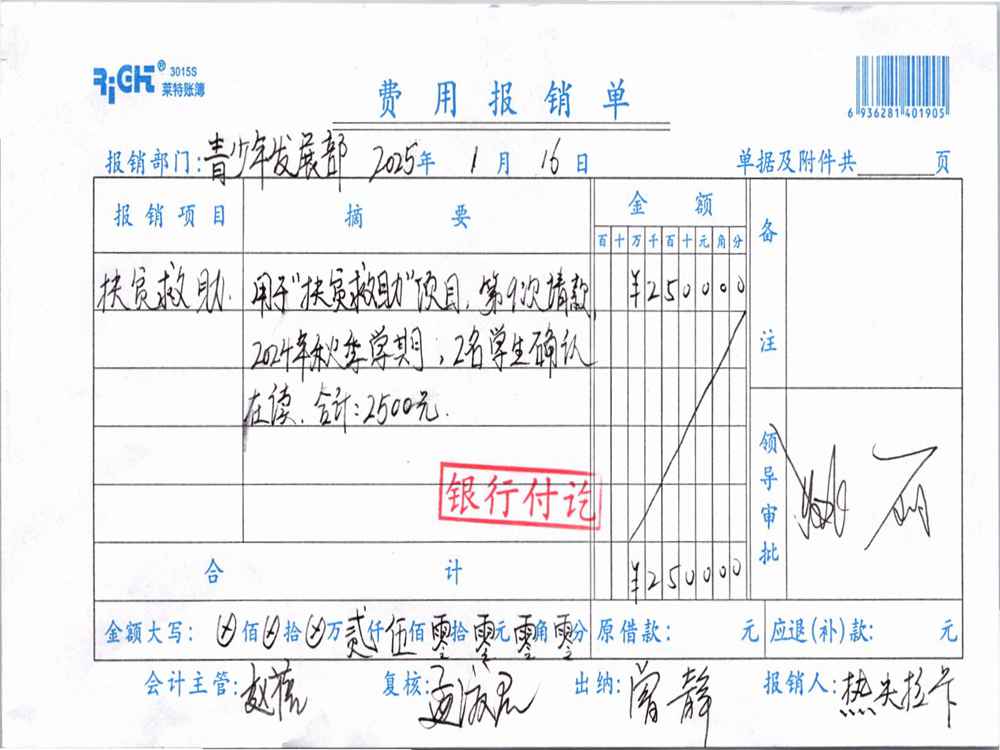 RiCH® 3015S
莱特账簿
费用报销单
6 936281 401905
报销部门:青少年发展部 2025年 1月 16日 单据及附件共 页
报销项目 摘要 金额 备注
百十万千百十元角分
扶贫救助. 用于"扶贫救助"项目,第9次请款, ¥250000
2024年秋季学期,2名学生确认
在读.合计:2500元.
银行付讫
领导审批 姚丽
合计 ¥250000
金额大写: ⊗佰⊗拾⊗万贰仟伍佰零拾零元零角零分 原借款: 元 应退(补)款: 元
会计主管: 复核: 出纳:曾静 报销人:热夹拉卡